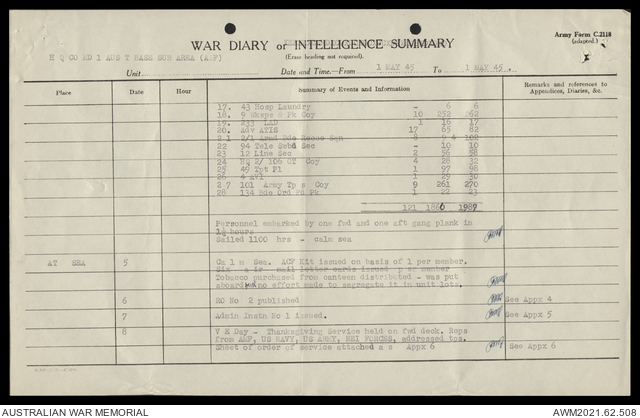 Army Form C.2118
(adapted.)
WAR DIARY or INTELLIGENCE SUMMARY
(Erase heading not required).
H Q CO ED 1 AUS T BASE SUB AREA (AIF)
Unit
Date and Time—From 1 MAY 45 To 1 MAY 45.
Place Date Hour Summary of Events and Information Remarks and references to Appendices, Diaries, &c.
17. 43 Hosp Laundry - 6 6
18. 9 Wksps & Pk Coy 10 252 262
19. 233 LAD 1 16 17
20. Adv ATIS 17 65 82
21 2/1 Armd Bde Recce Sqn
22 94 Tele Swbd Sec - 10 10
23 12 Line Sec 2 56 58
24 HQ 2/ 106 GT Coy 4 28 32
25 49 Tpt Pl 1 97 98
26 1 29 30
27 101 Army Tp s Coy 9 261 270
28 134 Bde Ord Fd Pk 1 22 23
121 1987
Personnel embarked by one fwd and one aft gang plank in
hours
Sailed 1100 hrs - calm sea
AT SEA 5 Ca l m Sea. ACF Kit issued on basis of 1 per member.
Six a ir mail letter cards issued p er member
Tobacco purchased from canteen distributed - was put
aboard no effort made to segregate it in unit lots.
6 RO No 2 published See Appx 4
7 Admin Instn No 1 issued. See Appx 5
8 V E Day - Thanksgiving Service held on fwd deck. Reps
from A&F, US NAVY, US ARMY, NEI FORCES, addressed tps.
Sheet of order of service attached a s Appx 6 See Appx 6
AUSTRALIAN WAR MEMORIAL
AWM2021.62.508